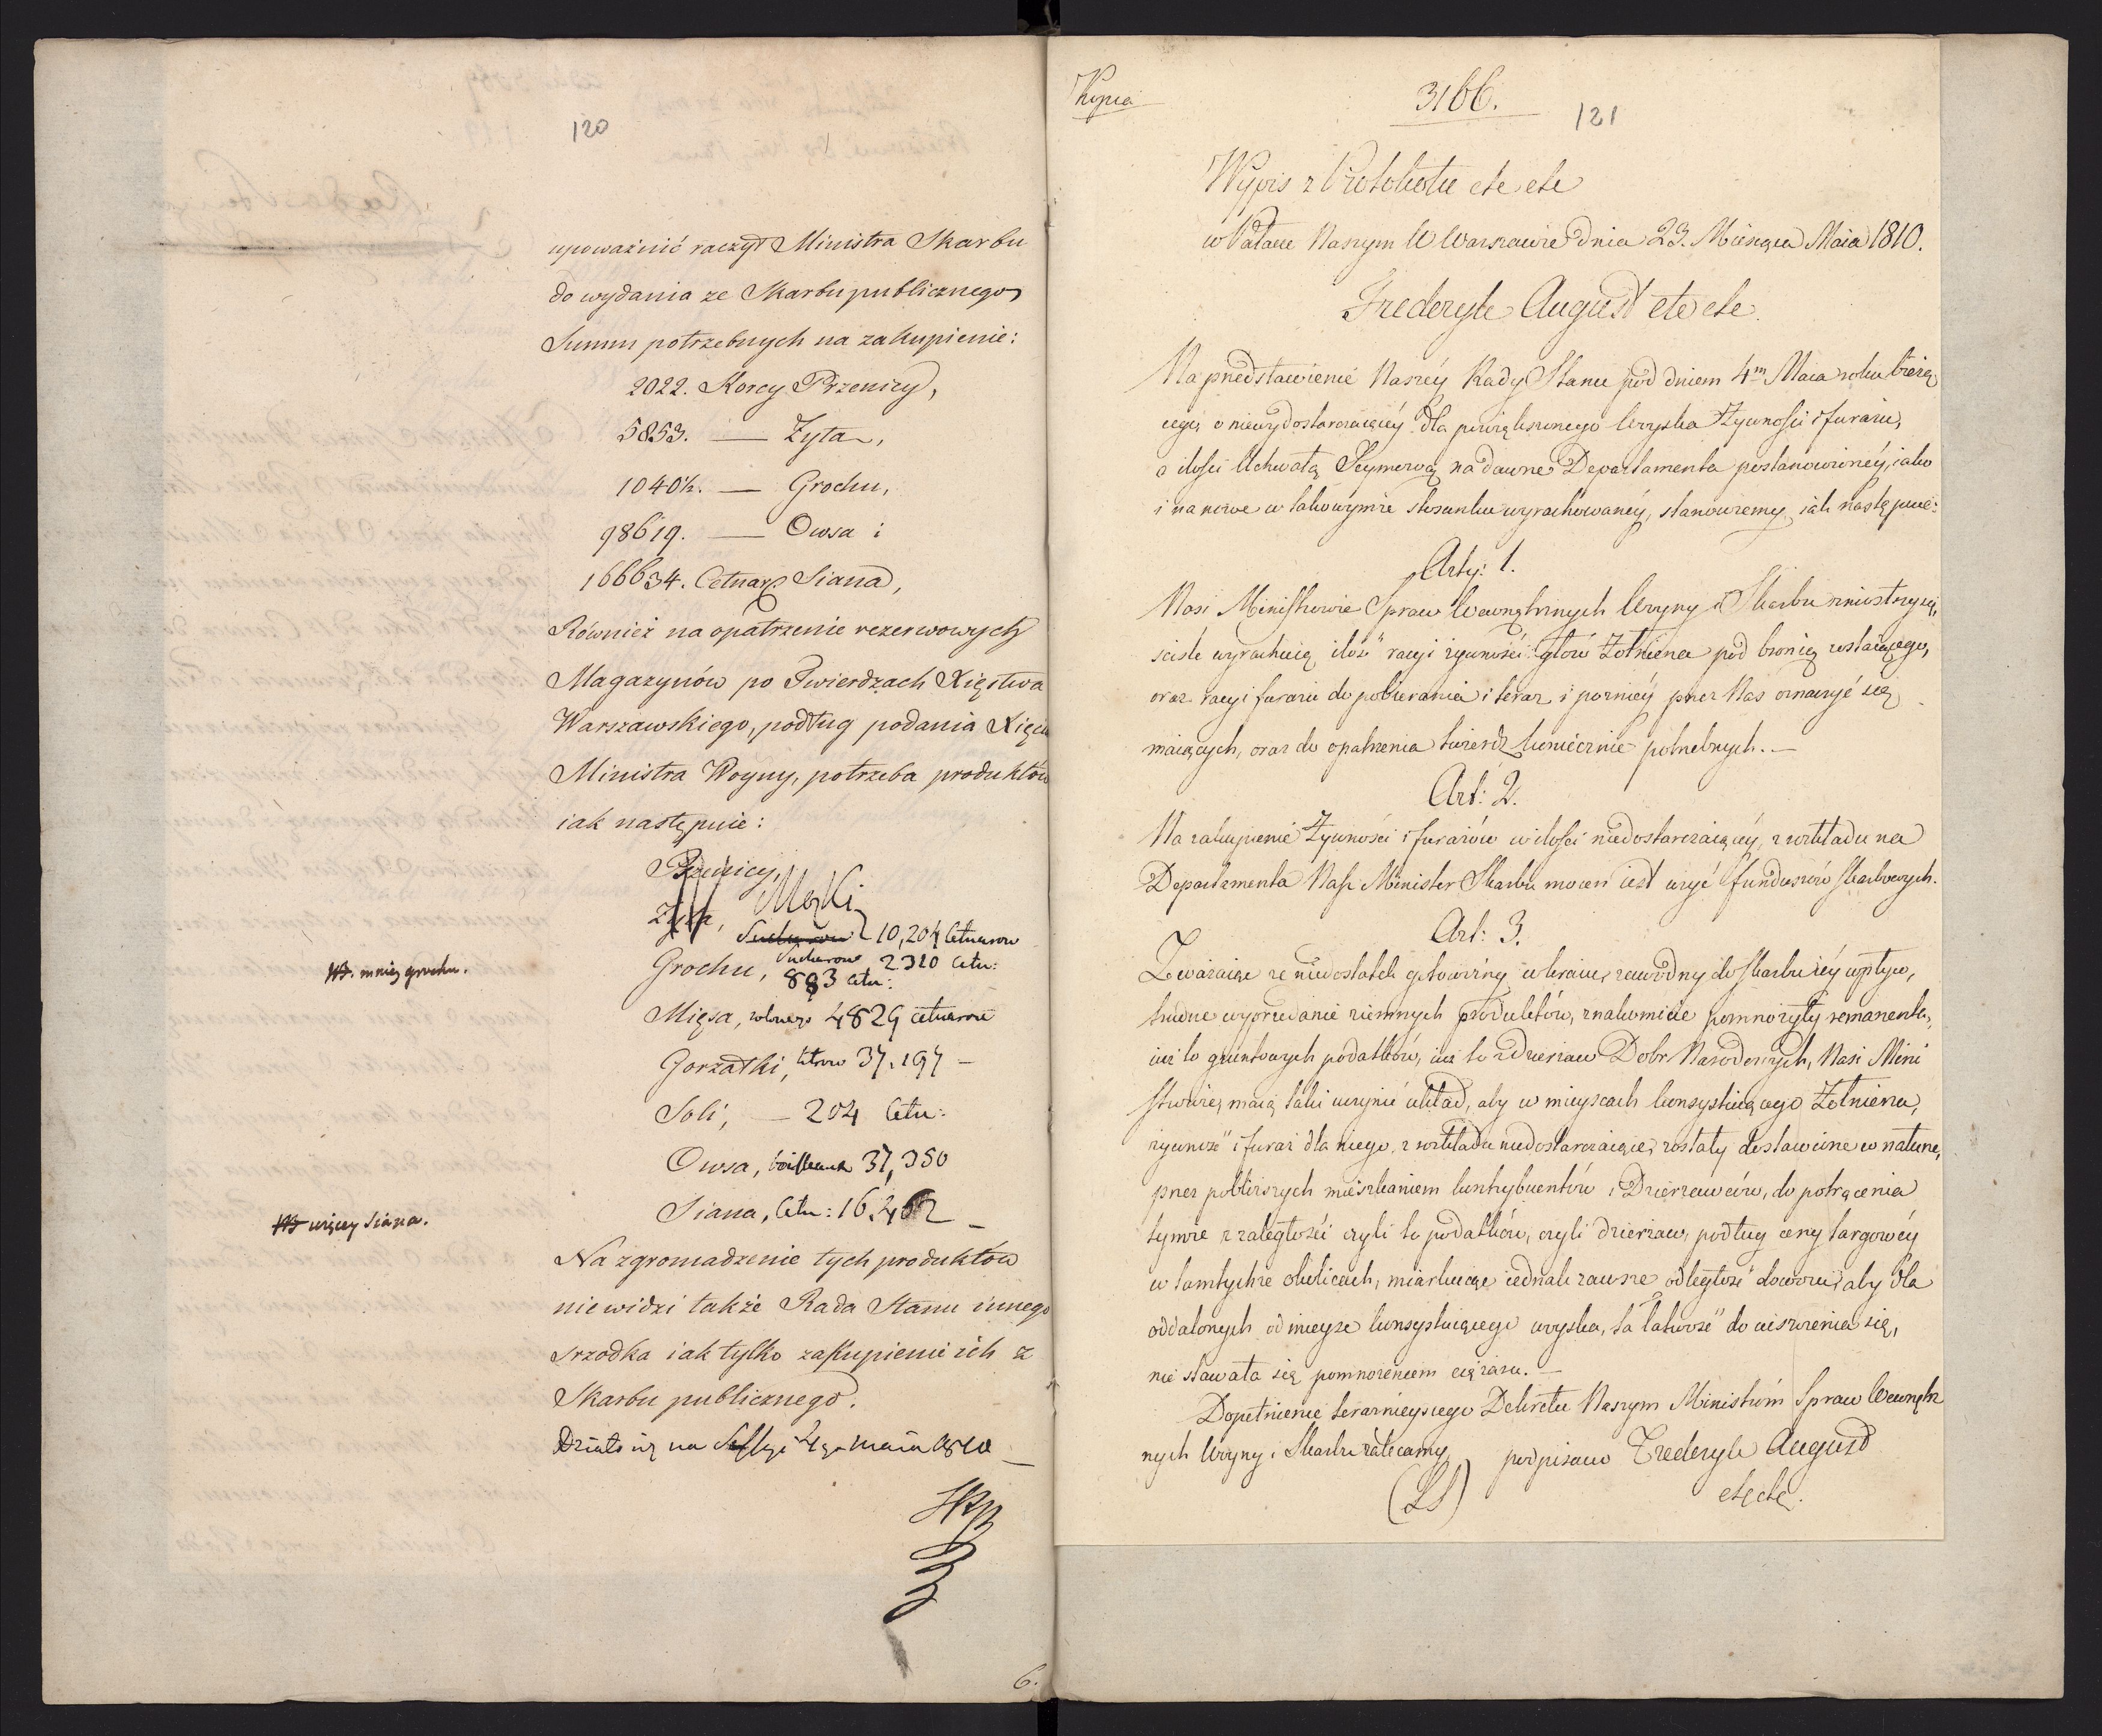 120
upoważnić raczył Ministra Skarbu
do wydania ze Skarbu publicznego
Summ potrzebnych na zakupienie:
2022. Korcy Przenicy,
5853. — Zyta,
1040½. — Grochu,
98619. — Owsa i
166634. Cetnar: Siana,
Również na opatrzenie rezerwowych
Magazynów po Twierdzach Xięstwa
Warszawskiego, podług podania Xięcia
Ministra Woyny, potrzeba produktów
iak następuie:
Przenicy,
Zyta, Mąki
10,204 Cetnarow
Sucharow 2320 Cetn:
Grochu, 893 Cetn:
NB. mniey grochu.
Mięsa, wołowego 4829 cetnarow
Gorzałki, litrow 37.197 —
Soli, — 204 Cetn:
Owsa, 37,350
Siana, Cetn: 16,262 —
NB więcey siana.
Na zgromadzenie tych produktów
niewidzi także Rada Stanu innego
srzodka iak tylko zakupienie ich z
Skarbu publicznego.
Działo się na Sessyi 4go Maia 1810 —
6.
Kopia
3166.
121
Wypis z Protokołu etc etc
w Pałacu Naszym w Warszawie dnia 23. Miesiąca Maia 1810.
Frederyk August etc etc.
Na przedstawienie Naszéy Rady Stanu pod dniem 4m Maia roku bieżą
cego, o niewydostarczaiącéy dla powiększonego woyska Żywności i furażu,
o ilości Uchwałą Seymową na dawne Departamenta postanowionéy, iako
i na nowe w takowymże stosunku wyrachowanéy, stanowiemy iak następuie:
Arty: 1.
Nasi Ministrowie Spraw Wewnętrznych Woyny i Skarbu zniosłszy się,
sciśle wyrachuią ilość racyi żywności głów Żołnierza pod bronią zostaiącego,
oraz racyi furażu do pobierania i teraz i pozniéy przez Nas oznaczyć się
maiących, oraz do opatrzenia twierdz koniecznie potrzebnych. —
Art: 2.
Na zakupienie Żywności i furażów w ilości niedostarczaiącéy, z rozkładu na
Departamenta Nasz Minister Skarbu mocen iest użyć funduszów skarbowych.
Art: 3.
Zważaiąc że niedostatek gotowizny w kraiu, zawodny do skarbu iéy wpływ,
trudne wyprzedanie ziemnych produktów, znakomicie pomnożyły remanenta,
iuż to gruntowych podatków, iuż to z dzierżaw Dobr Narodowych, Nasi Mini
strowie, maią taki uczynić układ, aby w mieyscach konsystuiącego Żołnierza,
żywność i furaż dla niego, z rozkładu niedostarczaiące, zostały dostawione w naturze,
przez poblizszych mieszkaniem kontrybuentów i Dzierżawców, do potrącenia
tymże z zaległości czyli to podatków, czyli dzierżaw, podług ceny targowéy
w tamtychże okolicach, miarkuiąc iednak zawsze odległość dowozu, aby dla
oddalonych od mieysc konsystuiącego woyska, ta łatwość do uiszczenia się,
nie stawała się pomnożeniem ciężaru. —
Dopełnienie terazneyszego Dekretu Naszym Ministróm Spraw Wewnętrz
nych Woyny i Skarbu zalecamy,
podpisano Frederyk August
(LS)
etc etc.